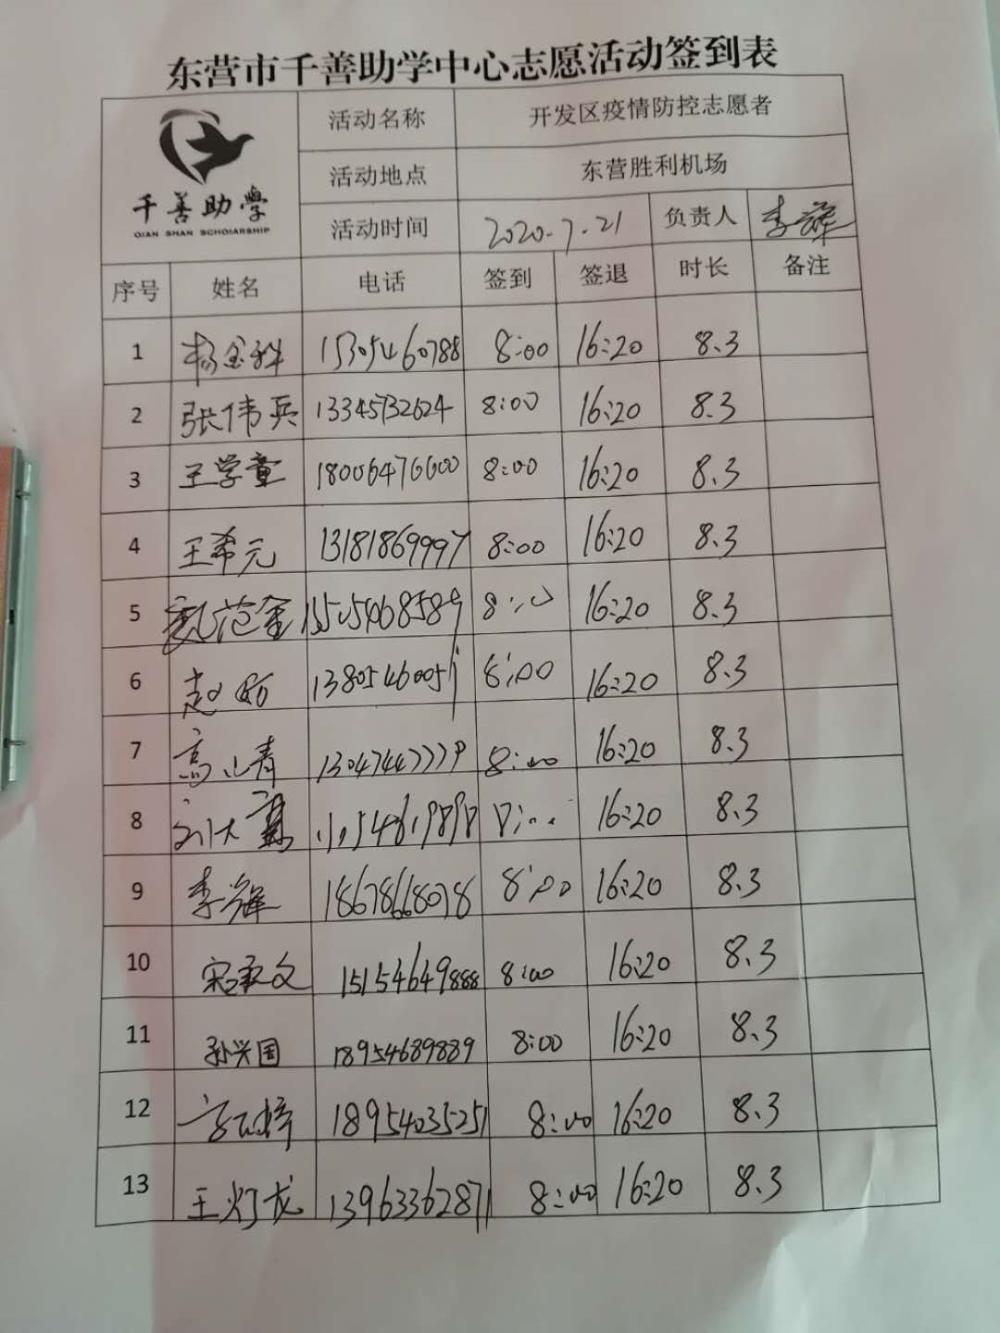 东营市千善助学中心志愿活动签到表
千善助学
QIAN SHAN SCHOIARSHIP
活动名称 开发区疫情防控志愿者
活动地点 东营胜利机场
活动时间 2020.7.21 负责人 李辉
序号 姓名 电话 签到 签退 时长 备注
1 杨金科 15305460788 8:00 16:20 8.3
2 张伟兵 13345732624 8:00 16:20 8.3
3 王学童 18006476600 8:00 16:20 8.3
4 王希元 13181869997 8:00 16:20 8.3
5 8:00 16:20 8.3
6 8:00 16:20 8.3
7 8:00 16:20 8.3
8 16:20 8.3
9 李辉 18678668078 8:00 16:20 8.3
10 15154649888 8:00 16:20 8.3
11 孙兴国 18954689889 8:00 16:20 8.3
12 18954035251 8:00 16:20 8.3
13 王灯龙 13963362871 8:00 16:20 8.3